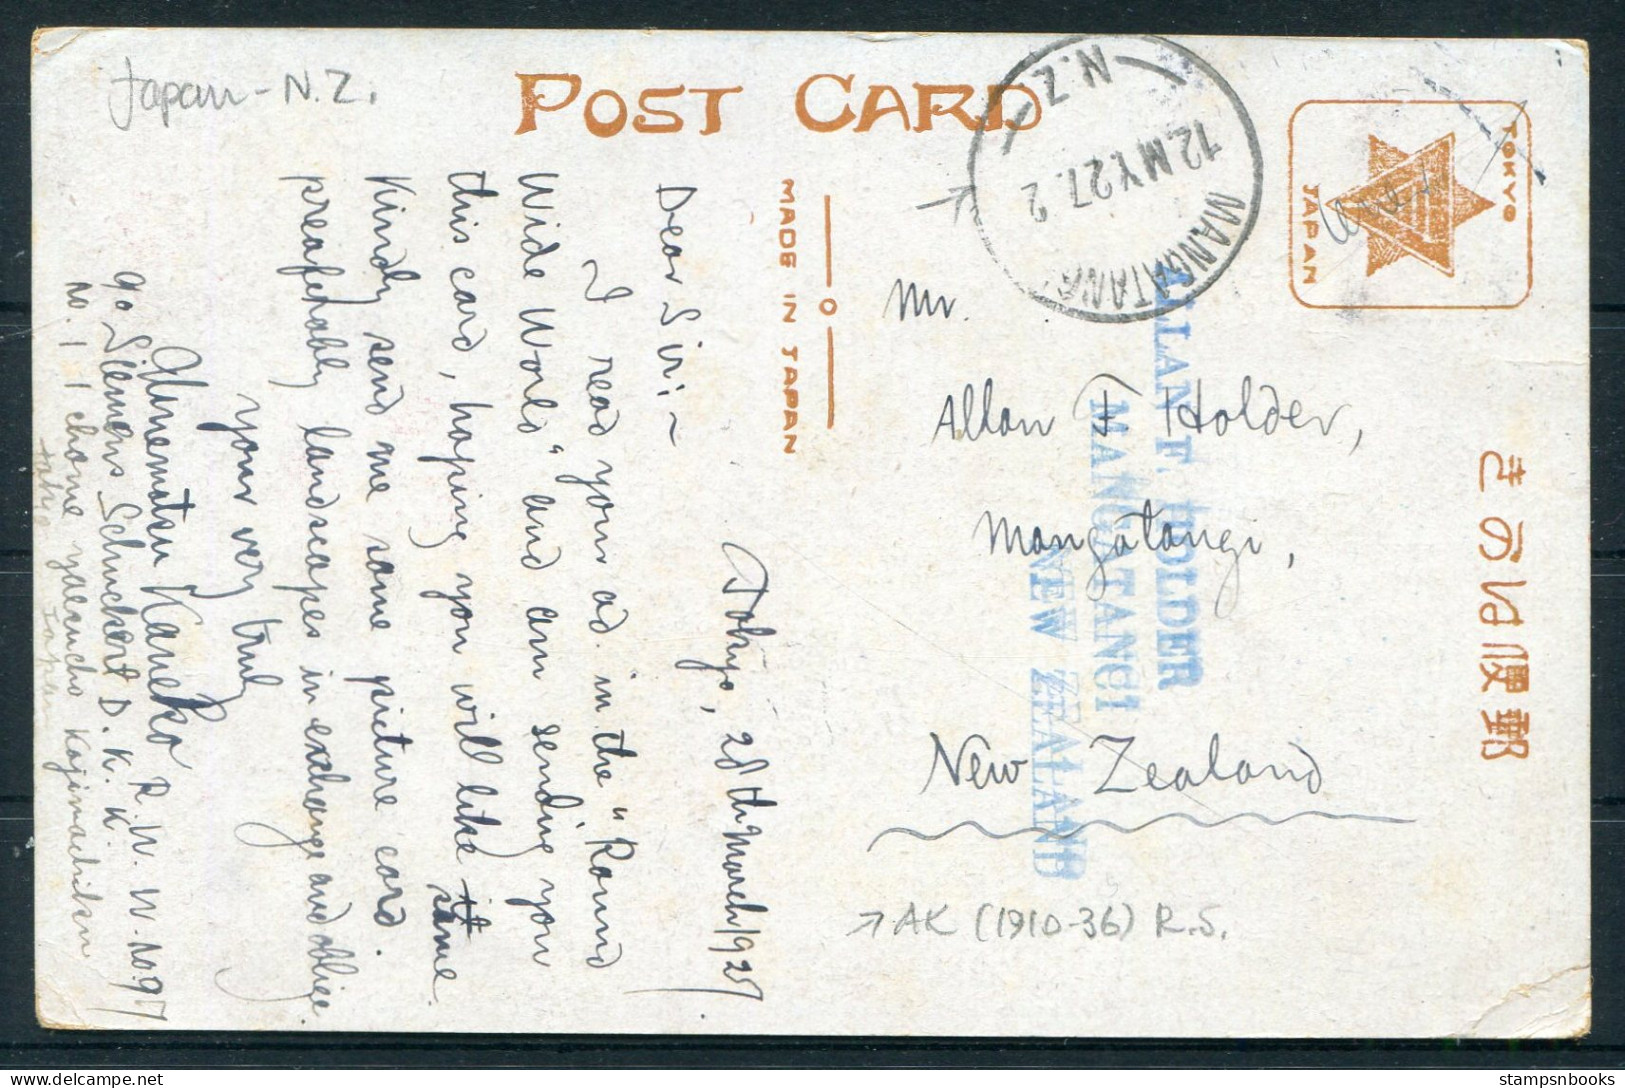 Japan - N.Z.
POST CARD
MADE IN JAPAN
TOKYO
JAPAN
きのは便郵
N.Z.
12.MY.27.2
MANGATANGI
Mr.
Allan F Holder,
Mangatangi,
New Zealand
ALLAN F. HOLDER
MANGATANGI
NEW ZEALAND
↗ AK (1910-36) R.S.
Tokyo, 28th March/1927
Dear Sir:~
I read your ad. in the "Round
Wide World" and am sending you
this card, hoping you will like it same.
Kindly send me some picture card.
preafehably landscapes in exchange and oblige.
your very truly
Umematsu Kaneko R.W.W.No.97
c/o Siemens Schuckert D.K.K.
No. 1 1 chome yaesucho Kojimachiku
Tokyo Japan